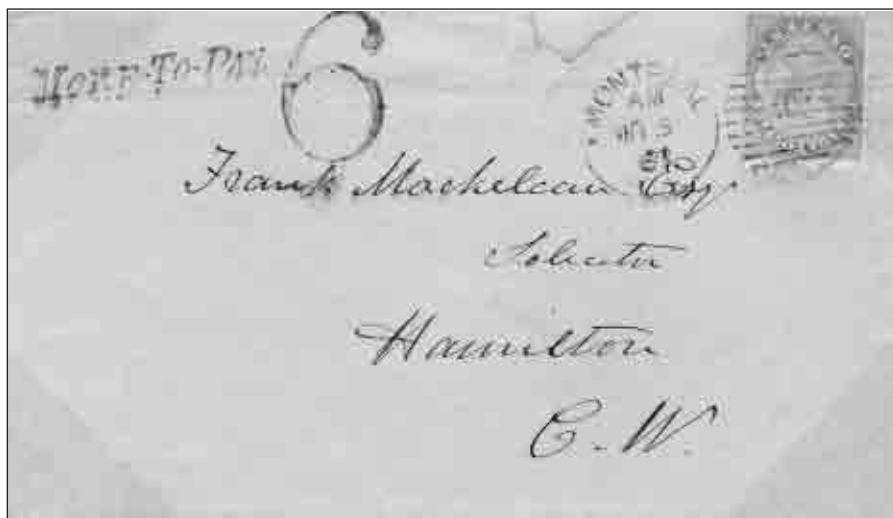 MORE-TO-PAY 6
MONT
AM
Frank Mackelcan Esq
Solicitor
Hamilton
C. W.